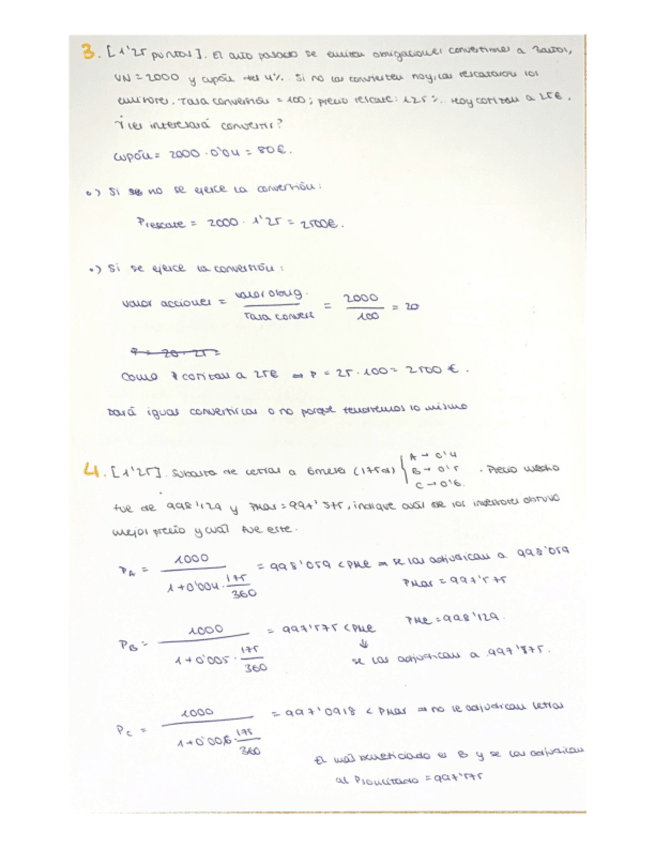 3. [1'25 puntos]. El año pasado se emiten obligaciones convertibles a 3 años,
VN = 2000 y cupón del 4%. Si no las convierten hoy, las rescatarán los
emisores. Tasa conversión = 100; precio rescate: 125%. Hoy cotizan a 25€.
¿Les interesará convertir?
Cupón = 2000 · 0'04 = 80€.
•) Si no se ejerce la conversión:
Prescate = 2000 · 1'25 = 2500€.
•) Si se ejerce la conversión:
Valor acciones = Valor oblig. / Tasa convers = 2000 / 100 = 20
P = 20 · 25 =
Como cotizan a 25€ ⇒ P = 25 · 100 = 2500 €.
Dará igual convertirlas o no porque tendremos lo mismo
4. [1'25]. Subasta de letras a 6 meses (175d) { A → 0'4 B → 0'5 C → 0'6 . Precio medio
fue de 998'129 y PMar = 997'575, indique cuál de los inversores obtuvo
mejor precio y cuál fue este.
PA = 1000 / 1+0'004 · 175/360 = 998'059 < PME ⇒ se las adjudican a 998'059
PMar = 997'575
PB = 1000 / 1+0'005 · 175/360 = 997'575 < PME PME = 998'129.
↓
se las adjudican a 997'575.
PC = 1000 / 1+0'006 · 175/360 = 997'0918 < PMar ⇒ no le adjudican letras
El más beneficiado es B y se las adjudican
al Psolicitado = 997'575